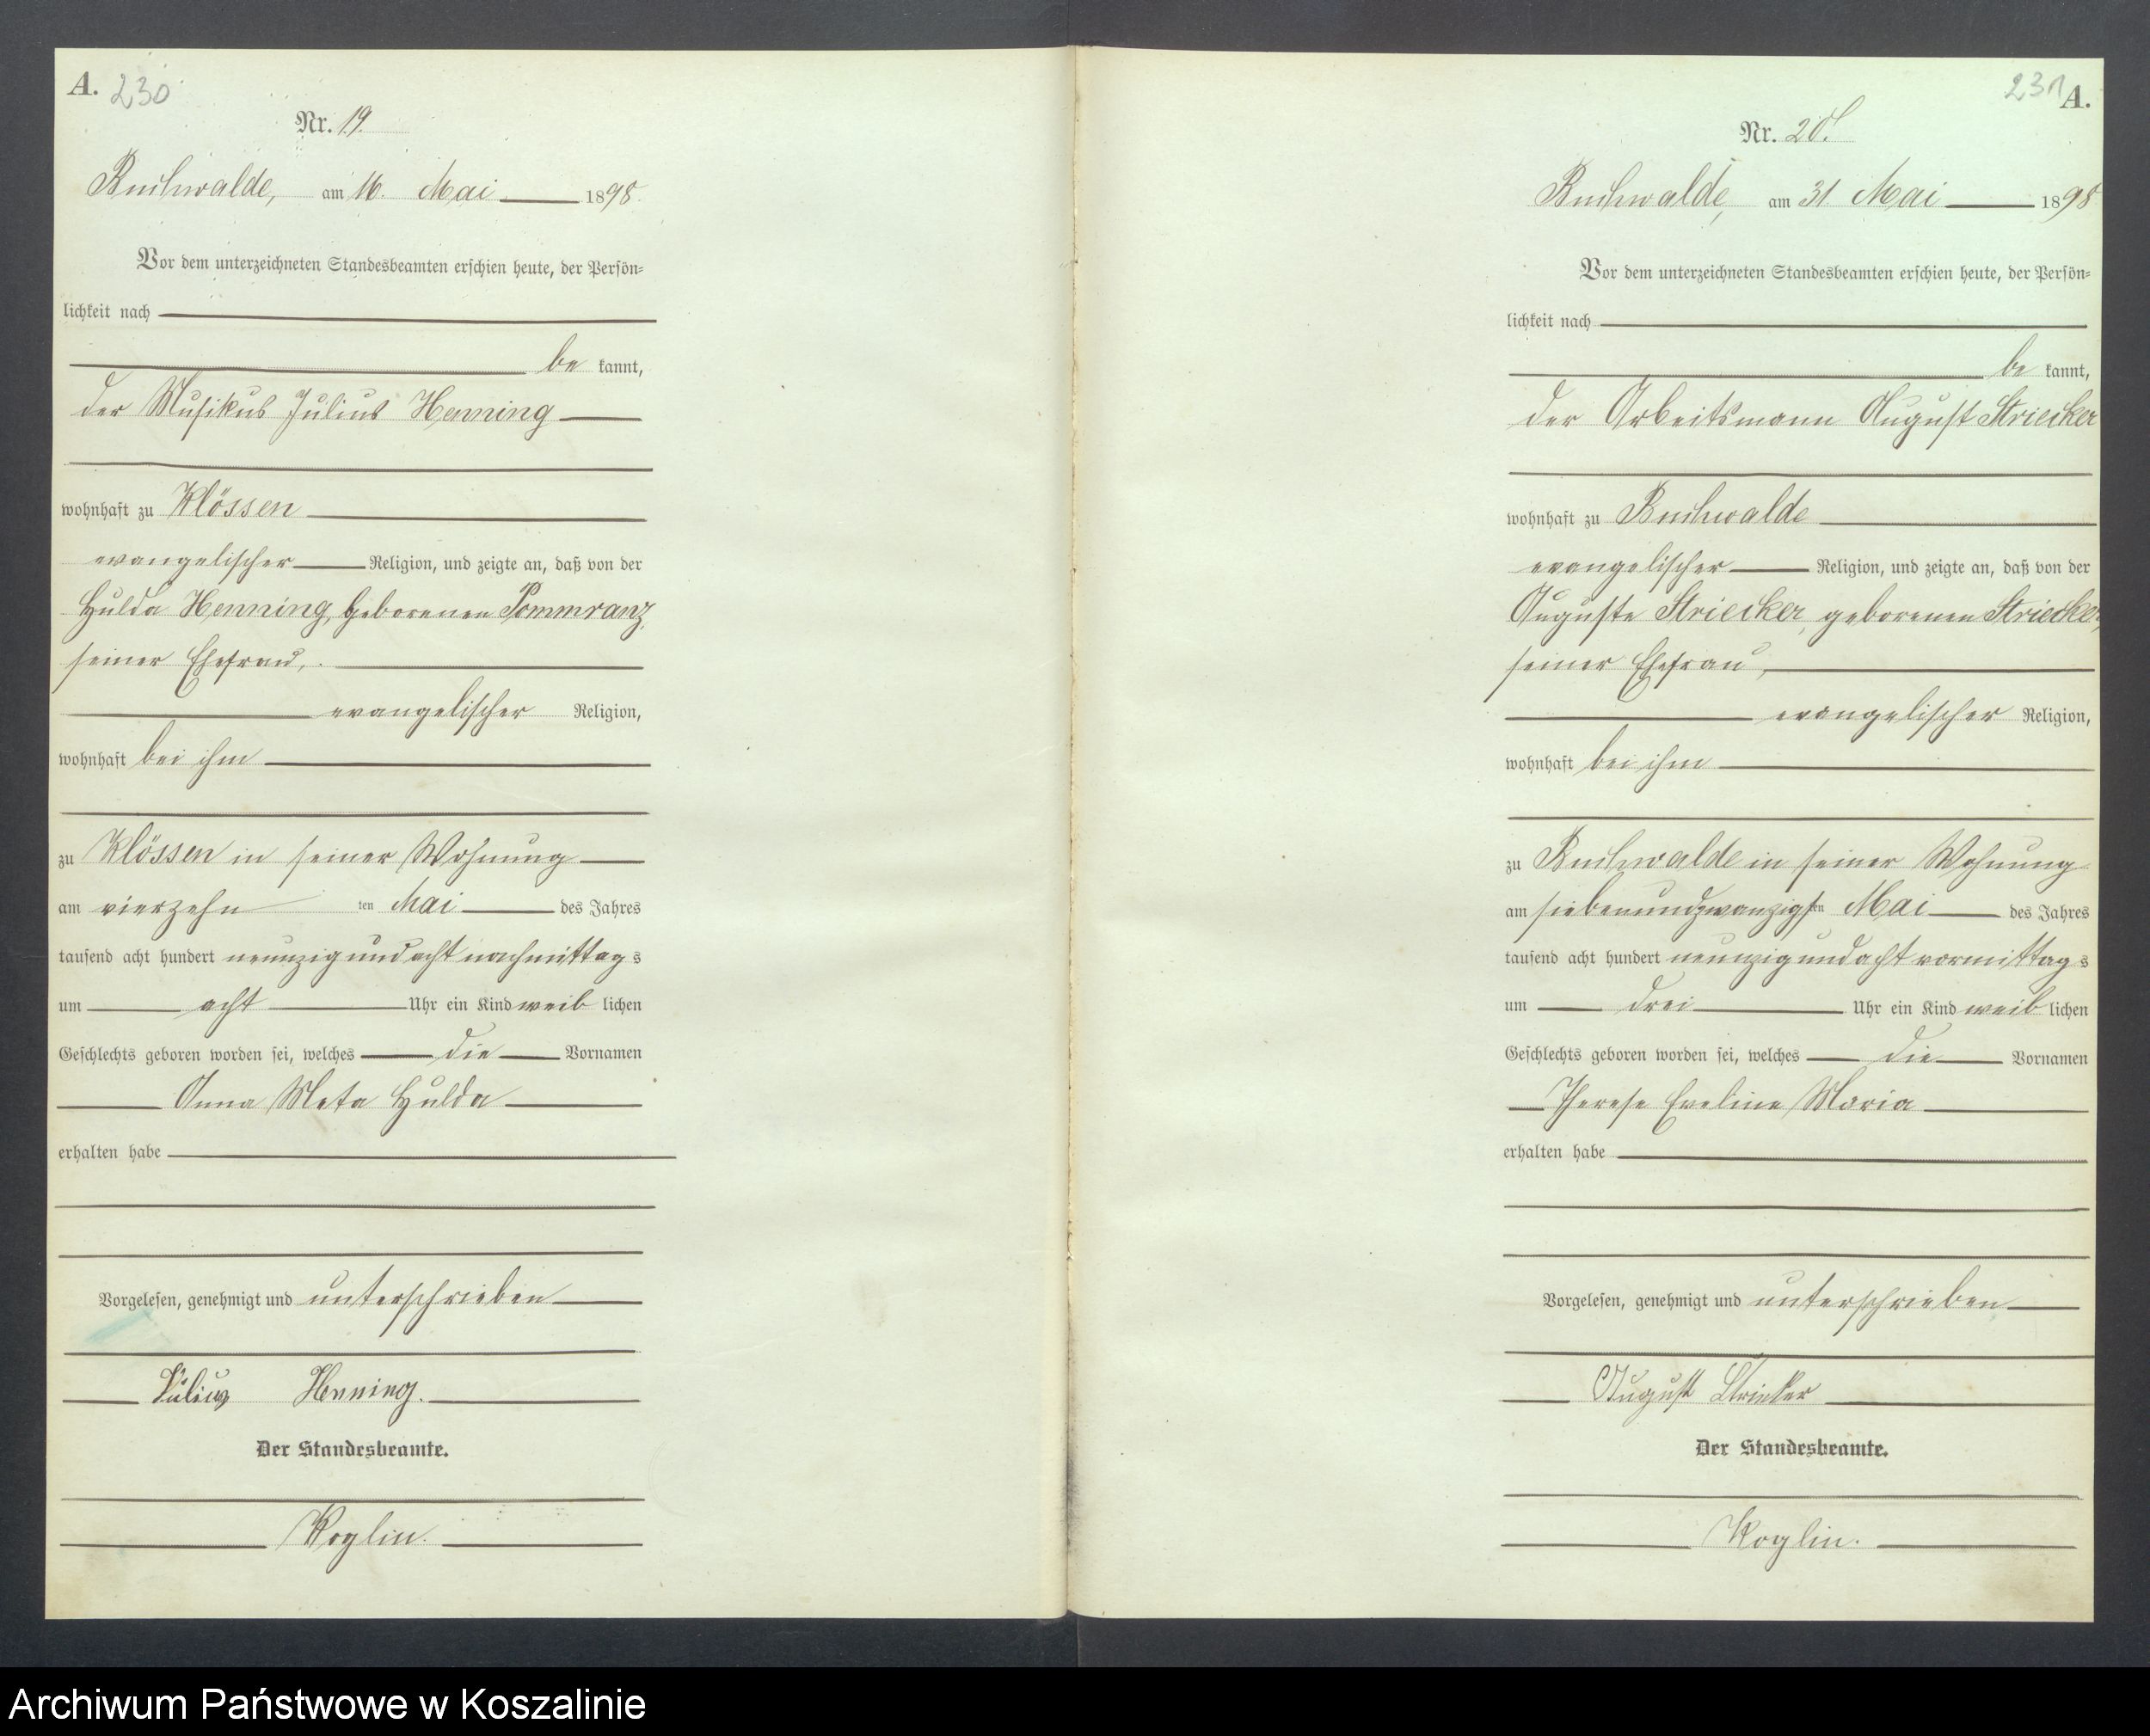 A. 230
Nr. 19.
Buchwalde, am 16. Mai 1898.
Vor dem unterzeichneten Standesbeamten erschien heute, der Persön=
lichkeit nach
be kannt,
der Musikus Julius Henning
wohnhaft zu Klössen
evangelischer Religion, und zeigte an, daß von der
Hulda Henning, geborenen Pommranz,
seiner Ehefrau,
evangelischer Religion,
wohnhaft bei ihm
zu Klössen in seiner Wohnung
am vierzehn ten Mai des Jahres
tausend acht hundert neunzig und acht nachmittag s
um acht Uhr ein Kind weib lichen
Geschlechts geboren worden sei, welches die Vornamen
Anna Meta Hulda
erhalten habe
Vorgelesen, genehmigt und unterschrieben
Julius Henning.
Der Standesbeamte.
Koglin.
231 A.
Nr. 20.
Buchwalde, am 31 Mai 1898
Vor dem unterzeichneten Standesbeamten erschien heute, der Persön=
lichkeit nach
be kannt,
der Arbeitsmann August Striecker
wohnhaft zu Buchwalde
evangelischer Religion, und zeigte an, daß von der
Auguste Striecker, geborenen Striecker,
seiner Ehefrau,
evangelischer Religion,
wohnhaft bei ihm
zu Buchwalde in seiner Wohnung
am siebenundzwanzigsten Mai des Jahres
tausend acht hundert neunzig und acht vormittag s
um drei Uhr ein Kind weib lichen
Geschlechts geboren worden sei, welches die Vornamen
Therese Eveline Maria
erhalten habe
Vorgelesen, genehmigt und unterschrieben
August Strieker
Der Standesbeamte.
Koglin.
Archiwum Państwowe w Koszalinie